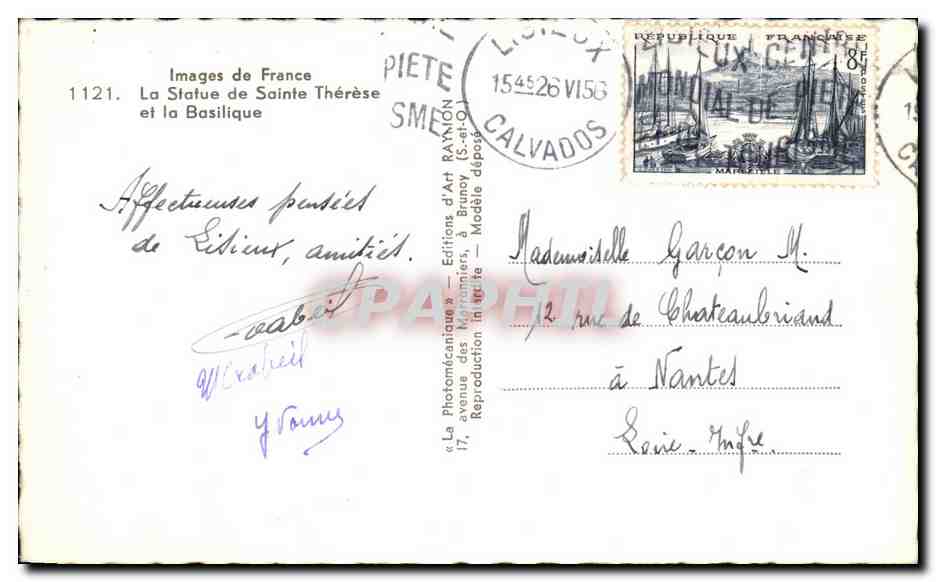 Images de France
1121. La Statue de Sainte Thérèse
et la Basilique
PIETE
SME
LISIEUX
15 45 26 VI 56
CALVADOS
REPUBLIQUE FRANÇAISE
8F
POSTES
MARSEILLE
UX CENTR
MONDIAL DE PIETE
Affectueuses pensées
de Lisieux, amitiés.
Yvonne
CPAPHIL
« La Photomécanique » — Editions d'Art RAYMON
17, avenue des Marronniers, à Brunoy (S.-et-O.)
Reproduction interdite — Modèle déposé
Mademoiselle Garçon M.
12 rue de Chateaubriand
à Nantes
Loire-Infre